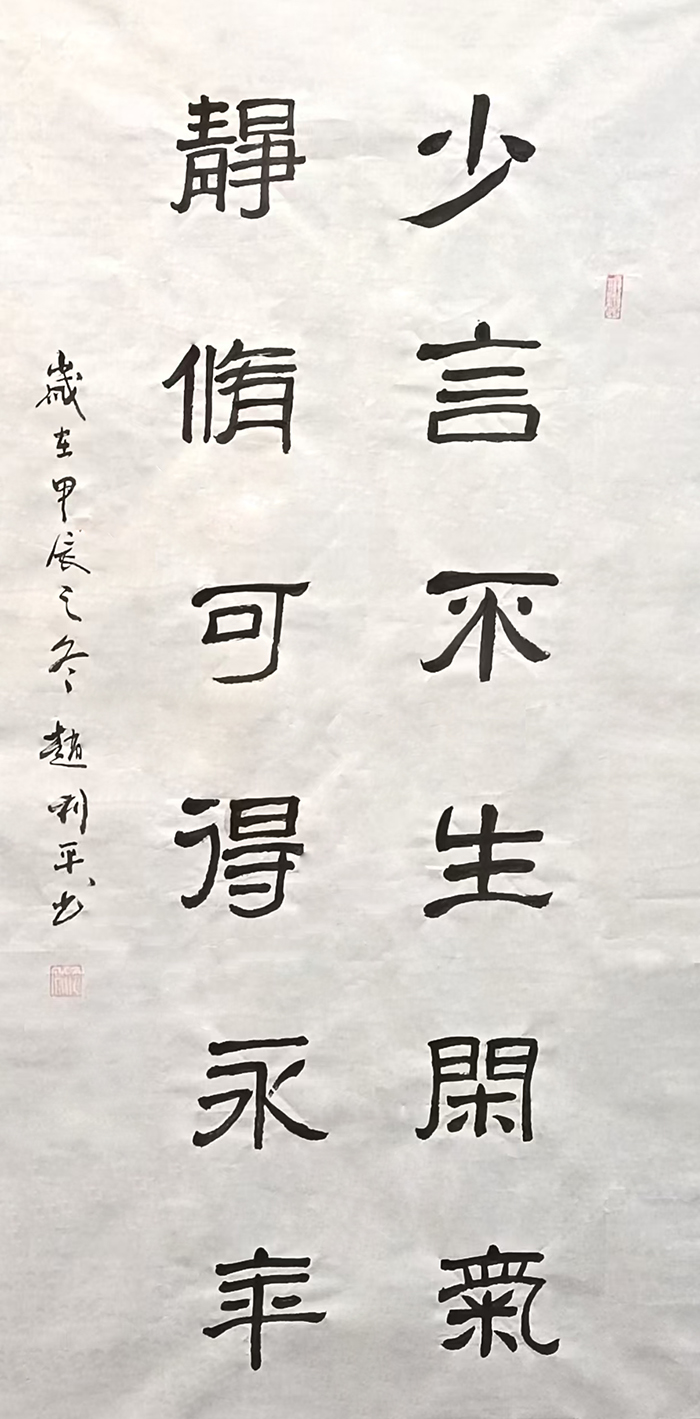 少言不生閑氣
靜脩可得永年
歲在甲辰之冬 趙利平書